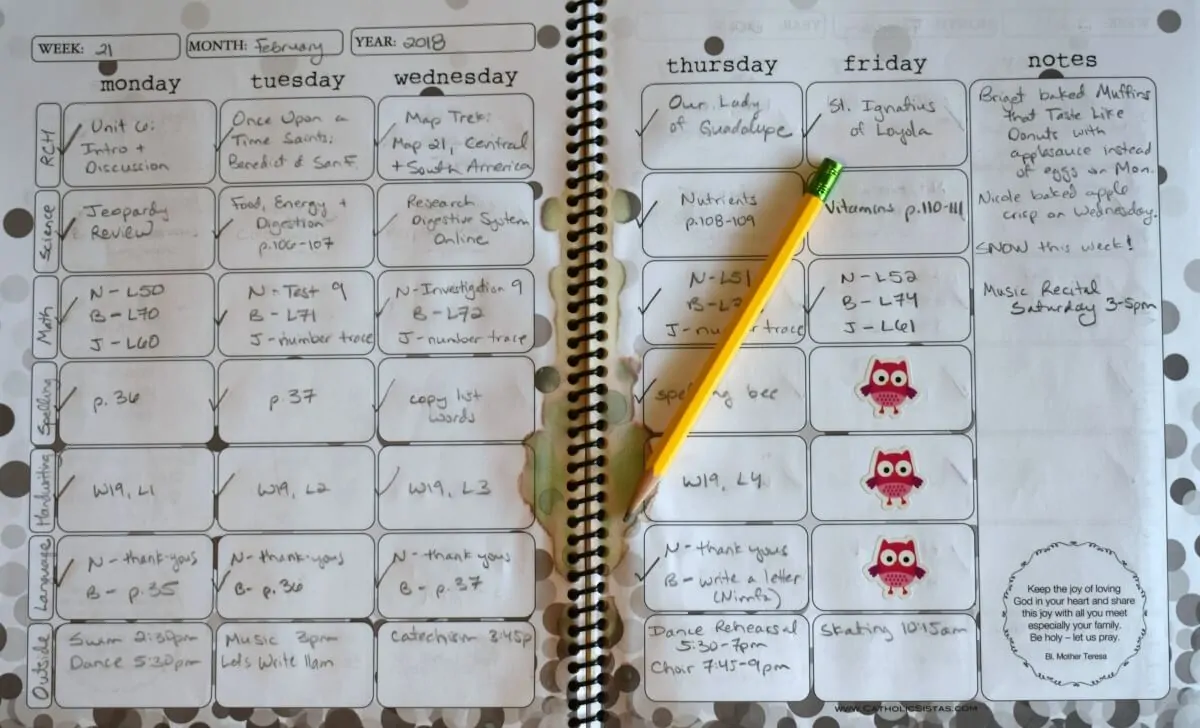 WEEK: 21
MONTH: February
YEAR: 2018
monday
tuesday
wednesday
RCH
Unit 6:
Intro +
Discussion
Once Upon a
Time Saints:
Benedict & San F.
Map Trek:
Map 21, Central
+ South America
Science
Jeopardy
Review
Food, Energy +
Digestion
p.106-107
Research
Digestive System
Online
Math
N-L50
B-L70
J-L60
N-Test 9
B-L71
J-number trace
N-Investigation 9
B-L72
J-number trace
Spelling
p. 36
p. 37
copy list
words
Handwriting
W19, L1
W19, L2
W19, L3
Language
N-thank-yous
B-p.35
N-thank-yous
B-p.36
N-thank yous
B-p.37
Outside
Swim 2:30pm
Dance 5:30pm
Music 3pm
Let's Write 11am
Catechism 3:45p
thursday
friday
notes
Our Lady
of Guadalupe
St. Ignatius
of Loyola
Nutrients
p.108-109
Vitamins p.110-111
N-L51
J-number trace
N-L52
B-L74
J-L61
spelling bee
W19, L4
N-thank yous
B-write a letter
Dance Rehearsal
5:30-7pm
Choir 7:45-9pm
Skating 10:15am
Briget baked Muffins
that Taste Like
Donuts with
applesauce instead
of eggs on Mon.
Nicole baked apple
crisp on Wednesday.
SNOW this week!
Music Recital
Saturday 3-5pm
Keep the joy of loving
God in your heart and share
this joy with all you meet
especially your family.
Be holy – let us pray.
Bl. Mother Teresa
WWW.CATHOLICSISTAS.COM